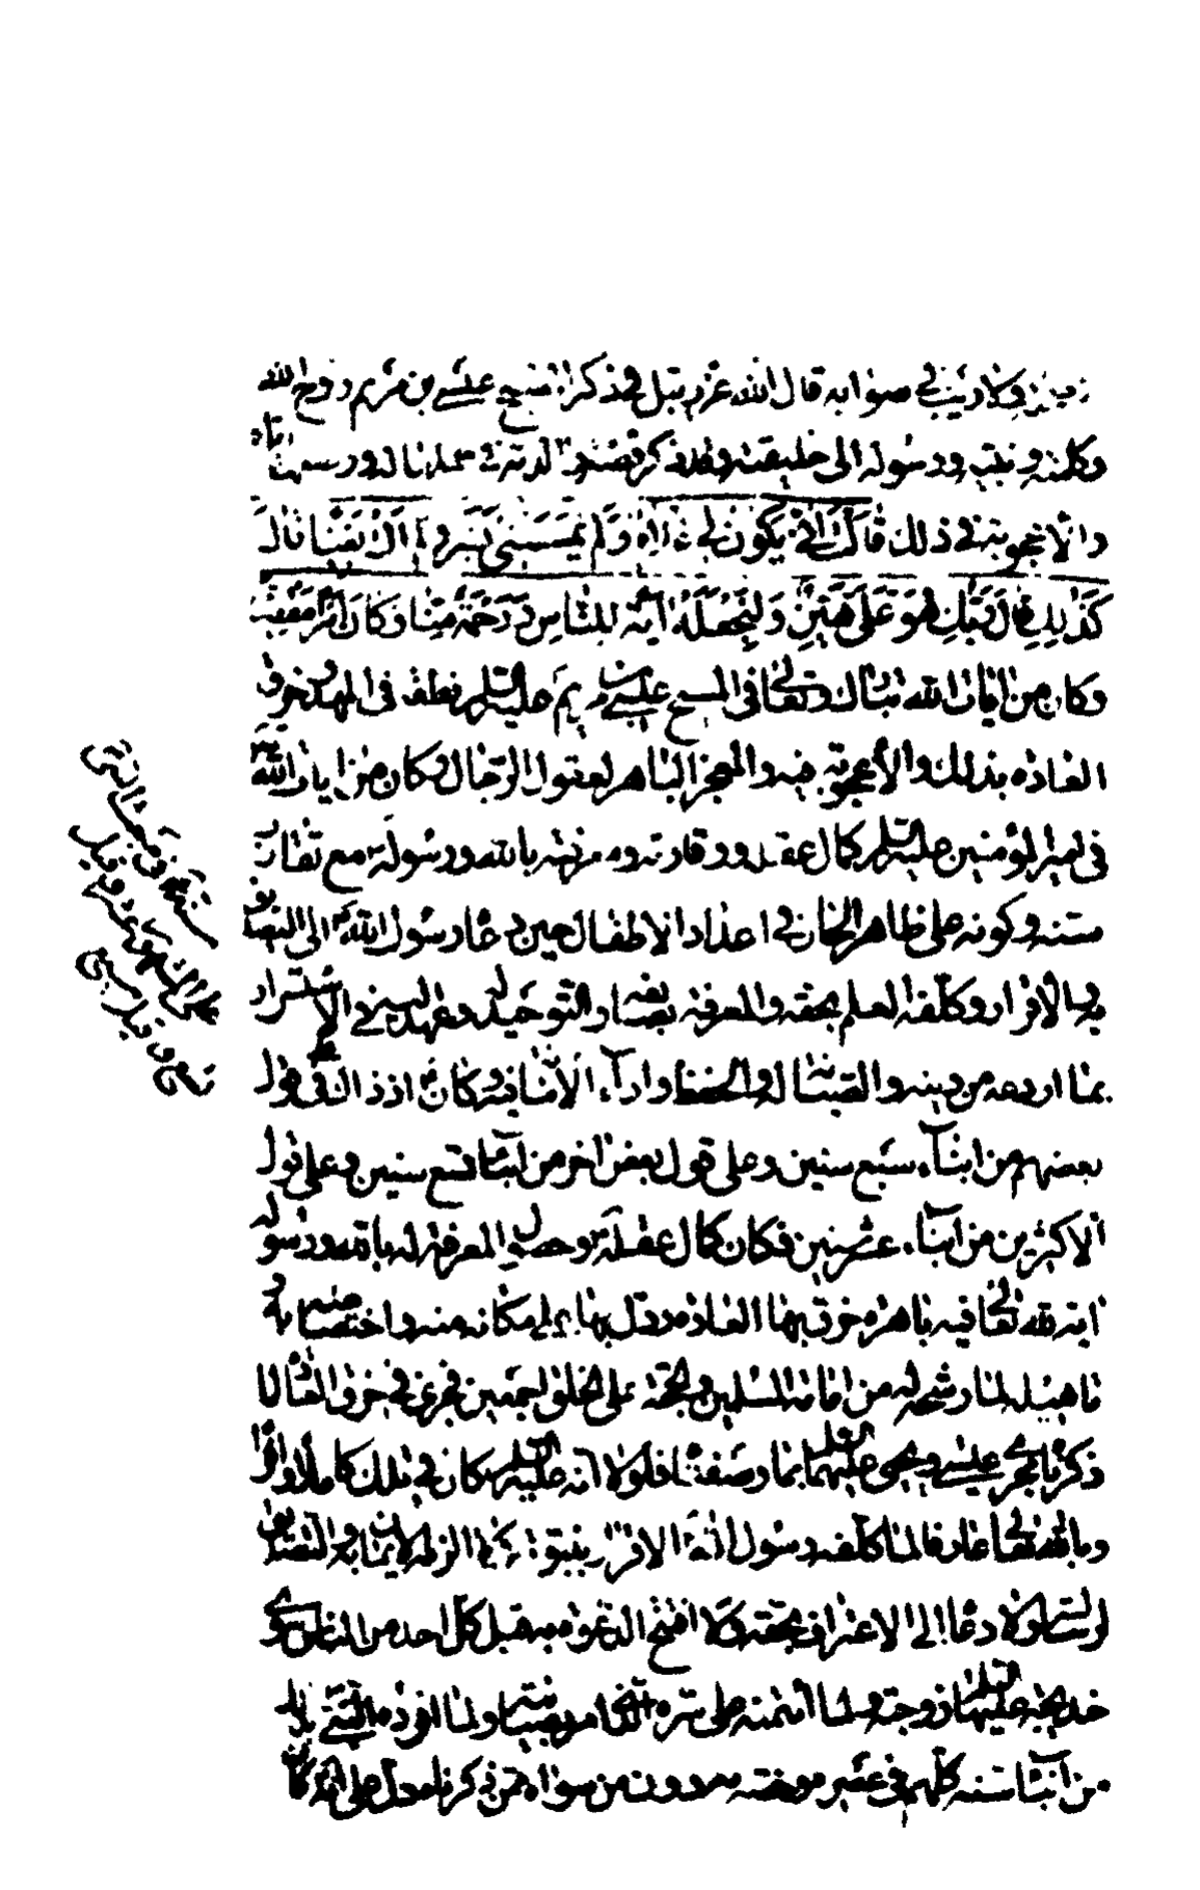 ولا ريب في صوابه قال الله عز وجل في ذكر المسيح عيسى بن مريم روح الله
وكلمته ونبيه ورسوله الى خليقته وقد ذكر قصة والدته في حملها له ووضعها اياه
والاعجوبة في ذلك قَالَتْ أَنّى يَكُونُ لِي غُلامٌ وَلَمْ يَمْسَسْنِي بَشَرٌ وَلَمْ أَكُ بَغِيًّا قَالَ
كَذَلِكِ قَالَ رَبُّكِ هُوَ عَلَيَّ هَيِّنٌ وَلِنَجْعَلَهُ آيَةً لِلنَّاسِ وَرَحْمَةً مِنَّا وَكَانَ أَمْرًا مَقْضِيًّا
وكان من ايات الله تبارك وتعالى في المسيح عيسى بن مريم عليه السلم نطقه في المهد وخرق
العادة بذلك والأعجوبة فيه والمعجز الباهر لعقول الرجال وكان من ايات الله تعالى
في امير المؤمنين عليه السلم كمال عقله ووقارته ومعرفته بالله ورسوله مع تقارب
سنه وكونه على ظاهر الحال في اعداد الاطفال حين دعاه رسول الله الى التصديق
به والاقرار وكلّفه العلم بحقه والمعرفة بصانعه والتوحيد له وعهد اليه في الاستسرار
بما اودعه من دينه والصيانة له والحفظ واداء الامانة فيه وكان اذ ذاك في قول
بعضهم من ابناء سبع سنين وعلى قول بعض اخر من ابناء تسع سنين وعلى قول
الاكثرين من ابناء عشر سنين فكان كمال عقله وحصول المعرفة له بالله ورسوله
اية لله تعالى فيه باهرة خرق بها العادة ودل بها على مكانه منه واختصاصه به
وتاهيله لما رشحه له من امامة المسلمين والحجة على الخلق اجمعين فجرى في خرق العادة لما
ذكرناه مجرى عيسى ويحيى عليهما السلم بما وصفناه فلولا انه عليه السلم كان في تلك كاملا وافرا
وبالله تعالى عارفا لما كلّفه رسول الله الاقرار بنبوته ولا الزمه الايمان به والتصديق
لرسالته ولا دعاه الى الاعتراف بحقه ولا افتتح الدعوة به قبل كل احد من الناس سوى
خديجة عليها السلم زوجته ولما ائتمنه على سره الذي امر بصيانته ولما افرده النبي بذلك
من ابناء سنه كلهم في عصره وخصه به دون من سواه ممن ذكرناه دل على انه كان